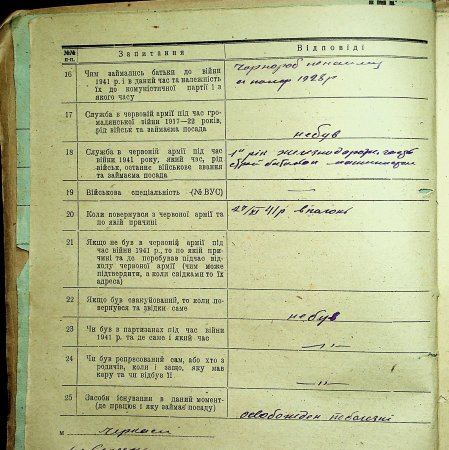 №№ п-п.
Запитання
Відповіді
16
Чим займались батьки до війни
1941 р. і в даний час та належність
їх до комуністичної партії і з
якого часу
1928 р
17
Служба в червоній армії під час гро-
мадянської війни 1917—22 років,
рід військ та займаєма посада
не був
18
Служба в червоній армії під час
війни 1941 року, який час, рід
військ, останнє військове звання
та займаєма посада
19
Військова спеціальність (№ ВУС)
—
20
Коли повернувся з червоної армії та
по якій причині
27/XI 41 р.
21
Якщо не був в червоній армії під
час війни 1941 р., то по якій при-
чині та де перебував підчас від-
ходу червоної армії (чим може
підтвердити, а коли свідками то їх
адреса)
22
Якщо був евакуйований, то коли по-
вернувся та звідки саме
не був
23
Чи був в партизанах під час війни
1941 р. та де саме і який час
—"—
24
Чи був репресований сам, або хто з
родичів, коли і защо, яку мав
кару та чи відбув її
—"—
25
Засоби існування в даний момент-
(де працює і яку займає посаду)
м Черкаси